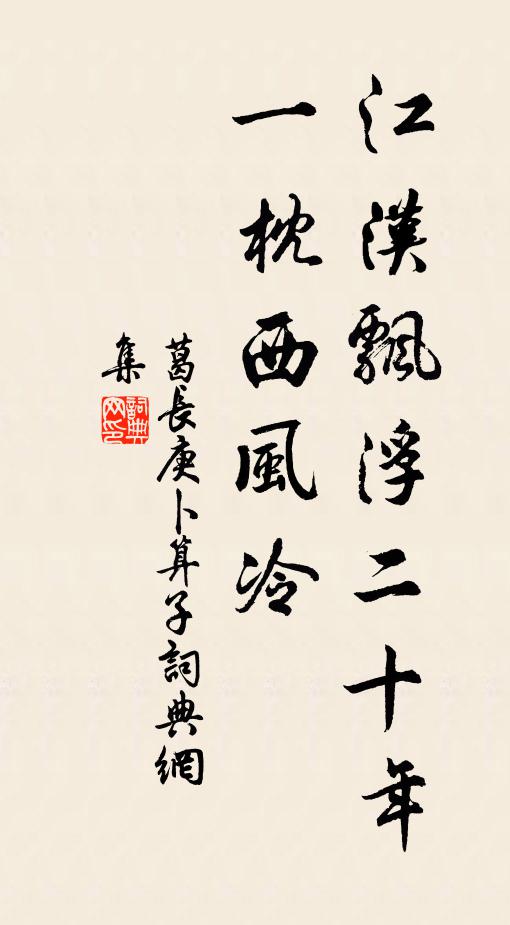 江漢飄浮二十年
一枕西風冷
葛長庚卜算子詞典網
集
詞典
网印